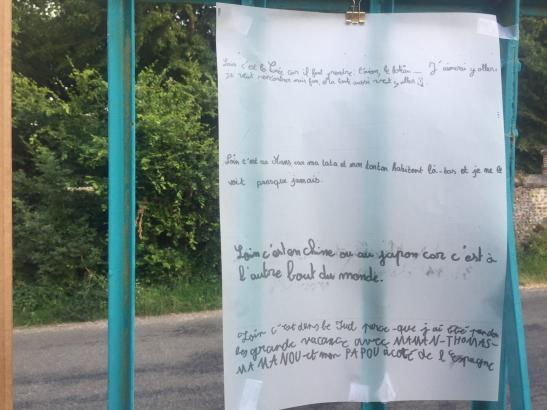 Loin c'est le car il faut prendre l'avion, le bateau... J'aimerai y aller
je veut rencontrer mais aussi veut y aller
Loin c'est au Mans car ma tata et mon tonton habitent là-bas et je ne le
voit presque jamais.
Loin c'est en chine ou au japon car c'est à
l'autre bout du monde.
Loin c'est dans le Sud parce-que j'ai été pendant
les grande vacance avec MAMAN-THOMAS-
MAMANOU-et mon PAPOU à côté de l'Espagne